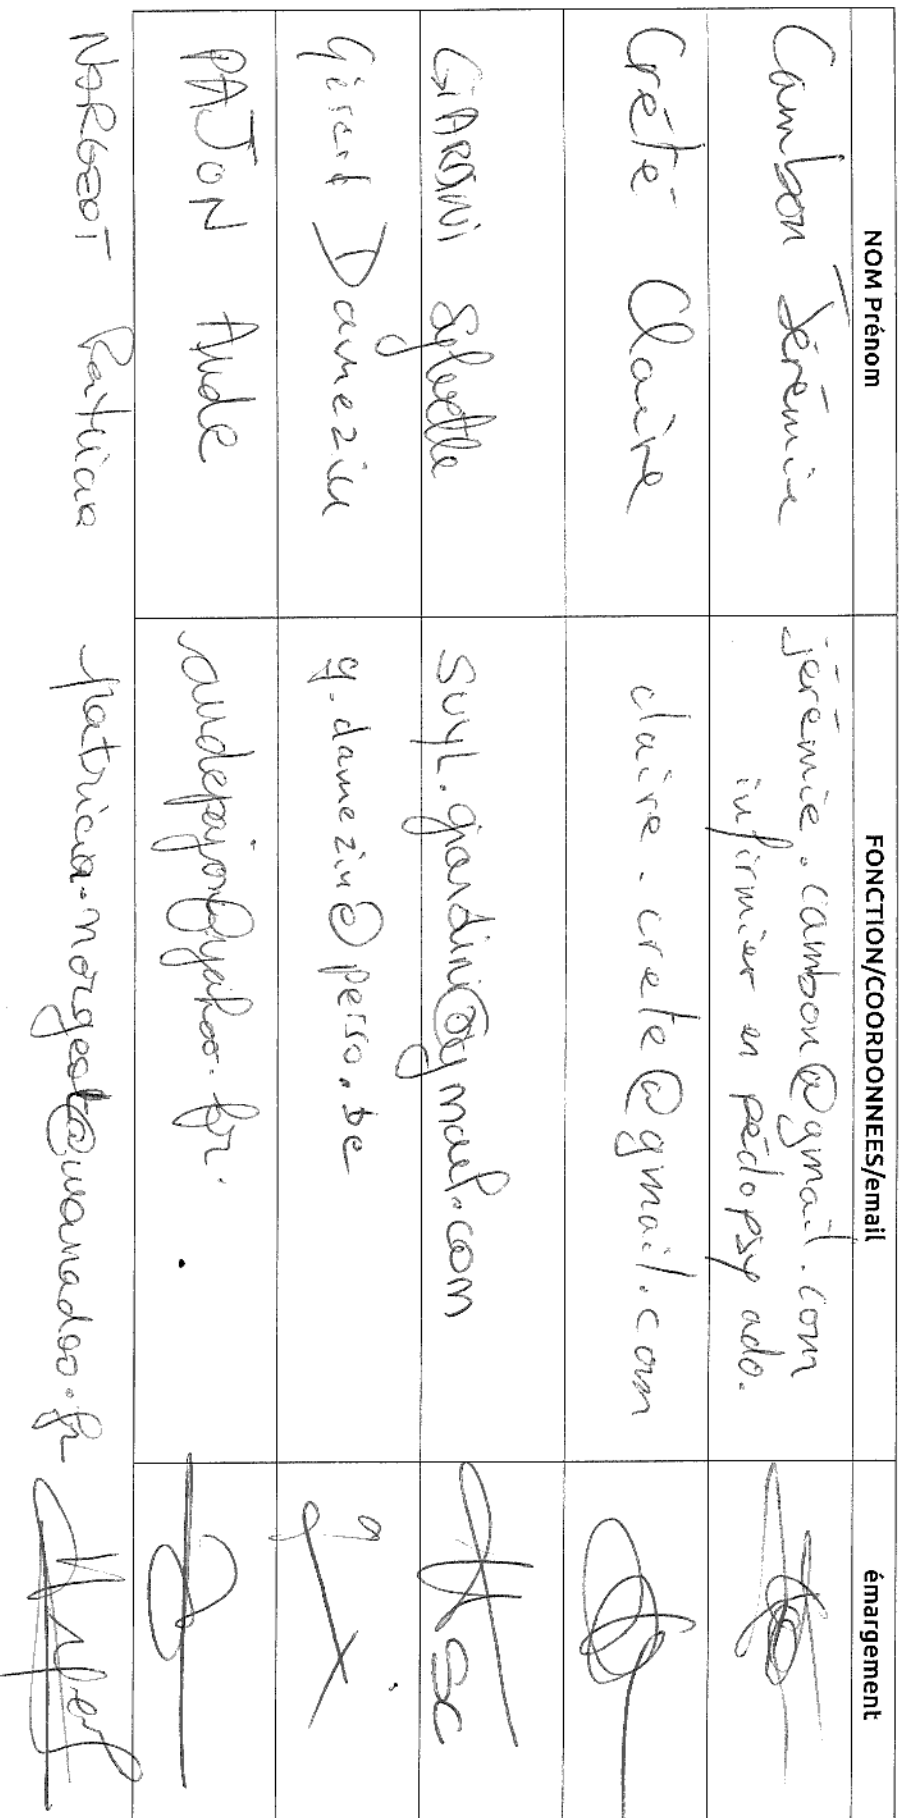 NOM Prénom FONCTION/COORDONNEES/email émargement
Cambon Jérémie jérémie.cambon@gmail.com
infirmier en pédopsy ado.
Crété Claire claire.crete@gmail.com
GIARDINI Sylvette suyl.giardini@gmail.com
Gérard Damezin g.damezin@perso.be
PAJON Aude audepajon@yahoo.fr.
NORGEOT Patricia patricia.norgeot@wanadoo.fr